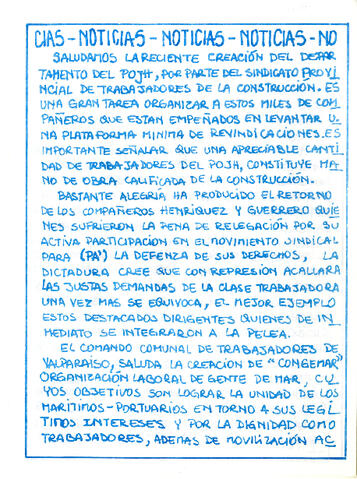 CIAS - NOTICIAS - NOTICIAS - NOTICIAS - NO
SALUDAMOS LA RECIENTE CREACIÓN DEL DEPAR
TAMENTO DEL POJH, POR PARTE DEL SINDICATO PROVIN
CIAL DE TRABAJADORES DE LA CONSTRUCCIÓN. ES
UNA GRAN TAREA ORGANIZAR A ESTOS MILES DE COM
PAÑEROS QUE ESTAN EMPEÑADOS EN LEVANTAR U
NA PLATAFORMA MINIMA DE REVINDICACIONES. ES
IMPORTANTE SEÑALAR QUE UNA APRECIABLE CANTI
DAD DE TRABAJADORES DEL POJH, CONSTITUYE MA
NO DE OBRA CALIFICADA DE LA CONSTRUCCIÓN.
BASTANTE ALEGRÍA HA PRODUCIDO EL RETORNO
DE LOS COMPAÑEROS HENRIQUEZ Y GUERRERO QUIE
NES SUFRIERON LA PENA DE RELEGACIÓN POR SU
ACTIVA PARTICIPACION EN EL MOVIMIENTO SINDICAL
PARA (PA') LA DEFENZA DE SUS DERECHOS, LA
DICTADURA CREE QUE CON REPRESIÓN ACALLARA
LAS JUSTAS DEMANDAS DE LA CLASE TRABAJADORA
UNA VEZ MAS SE EQUIVOCA, EL MEJOR EJEMPLO
ESTOS DESTACADOS DIRIGENTES QUIENES DE IN
MEDIATO SE INTEGRARON A LA PELEA.
EL COMANDO COMUNAL DE TRABAJADORES DE
VALPARAÍSO, SALUDA LA CREACION DE "CONGEMAR"
ORGANIZACIÓN LABORAL DE GENTE DE MAR, CU
YOS OBJETIVOS SON LOGRAR LA UNIDAD DE LOS
MARÍTIMOS - PORTUARIOS EN TORNO A SUS LEGÍ
TIMOS INTERESES Y POR LA DIGNIDAD COMO
TRABAJADORES, ADEMAS DE MOVILIZACIÓN AC